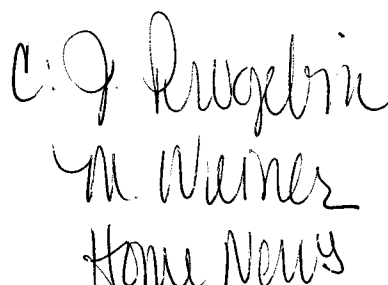 C: J. Pervogelrin
M. Weiner
Home News